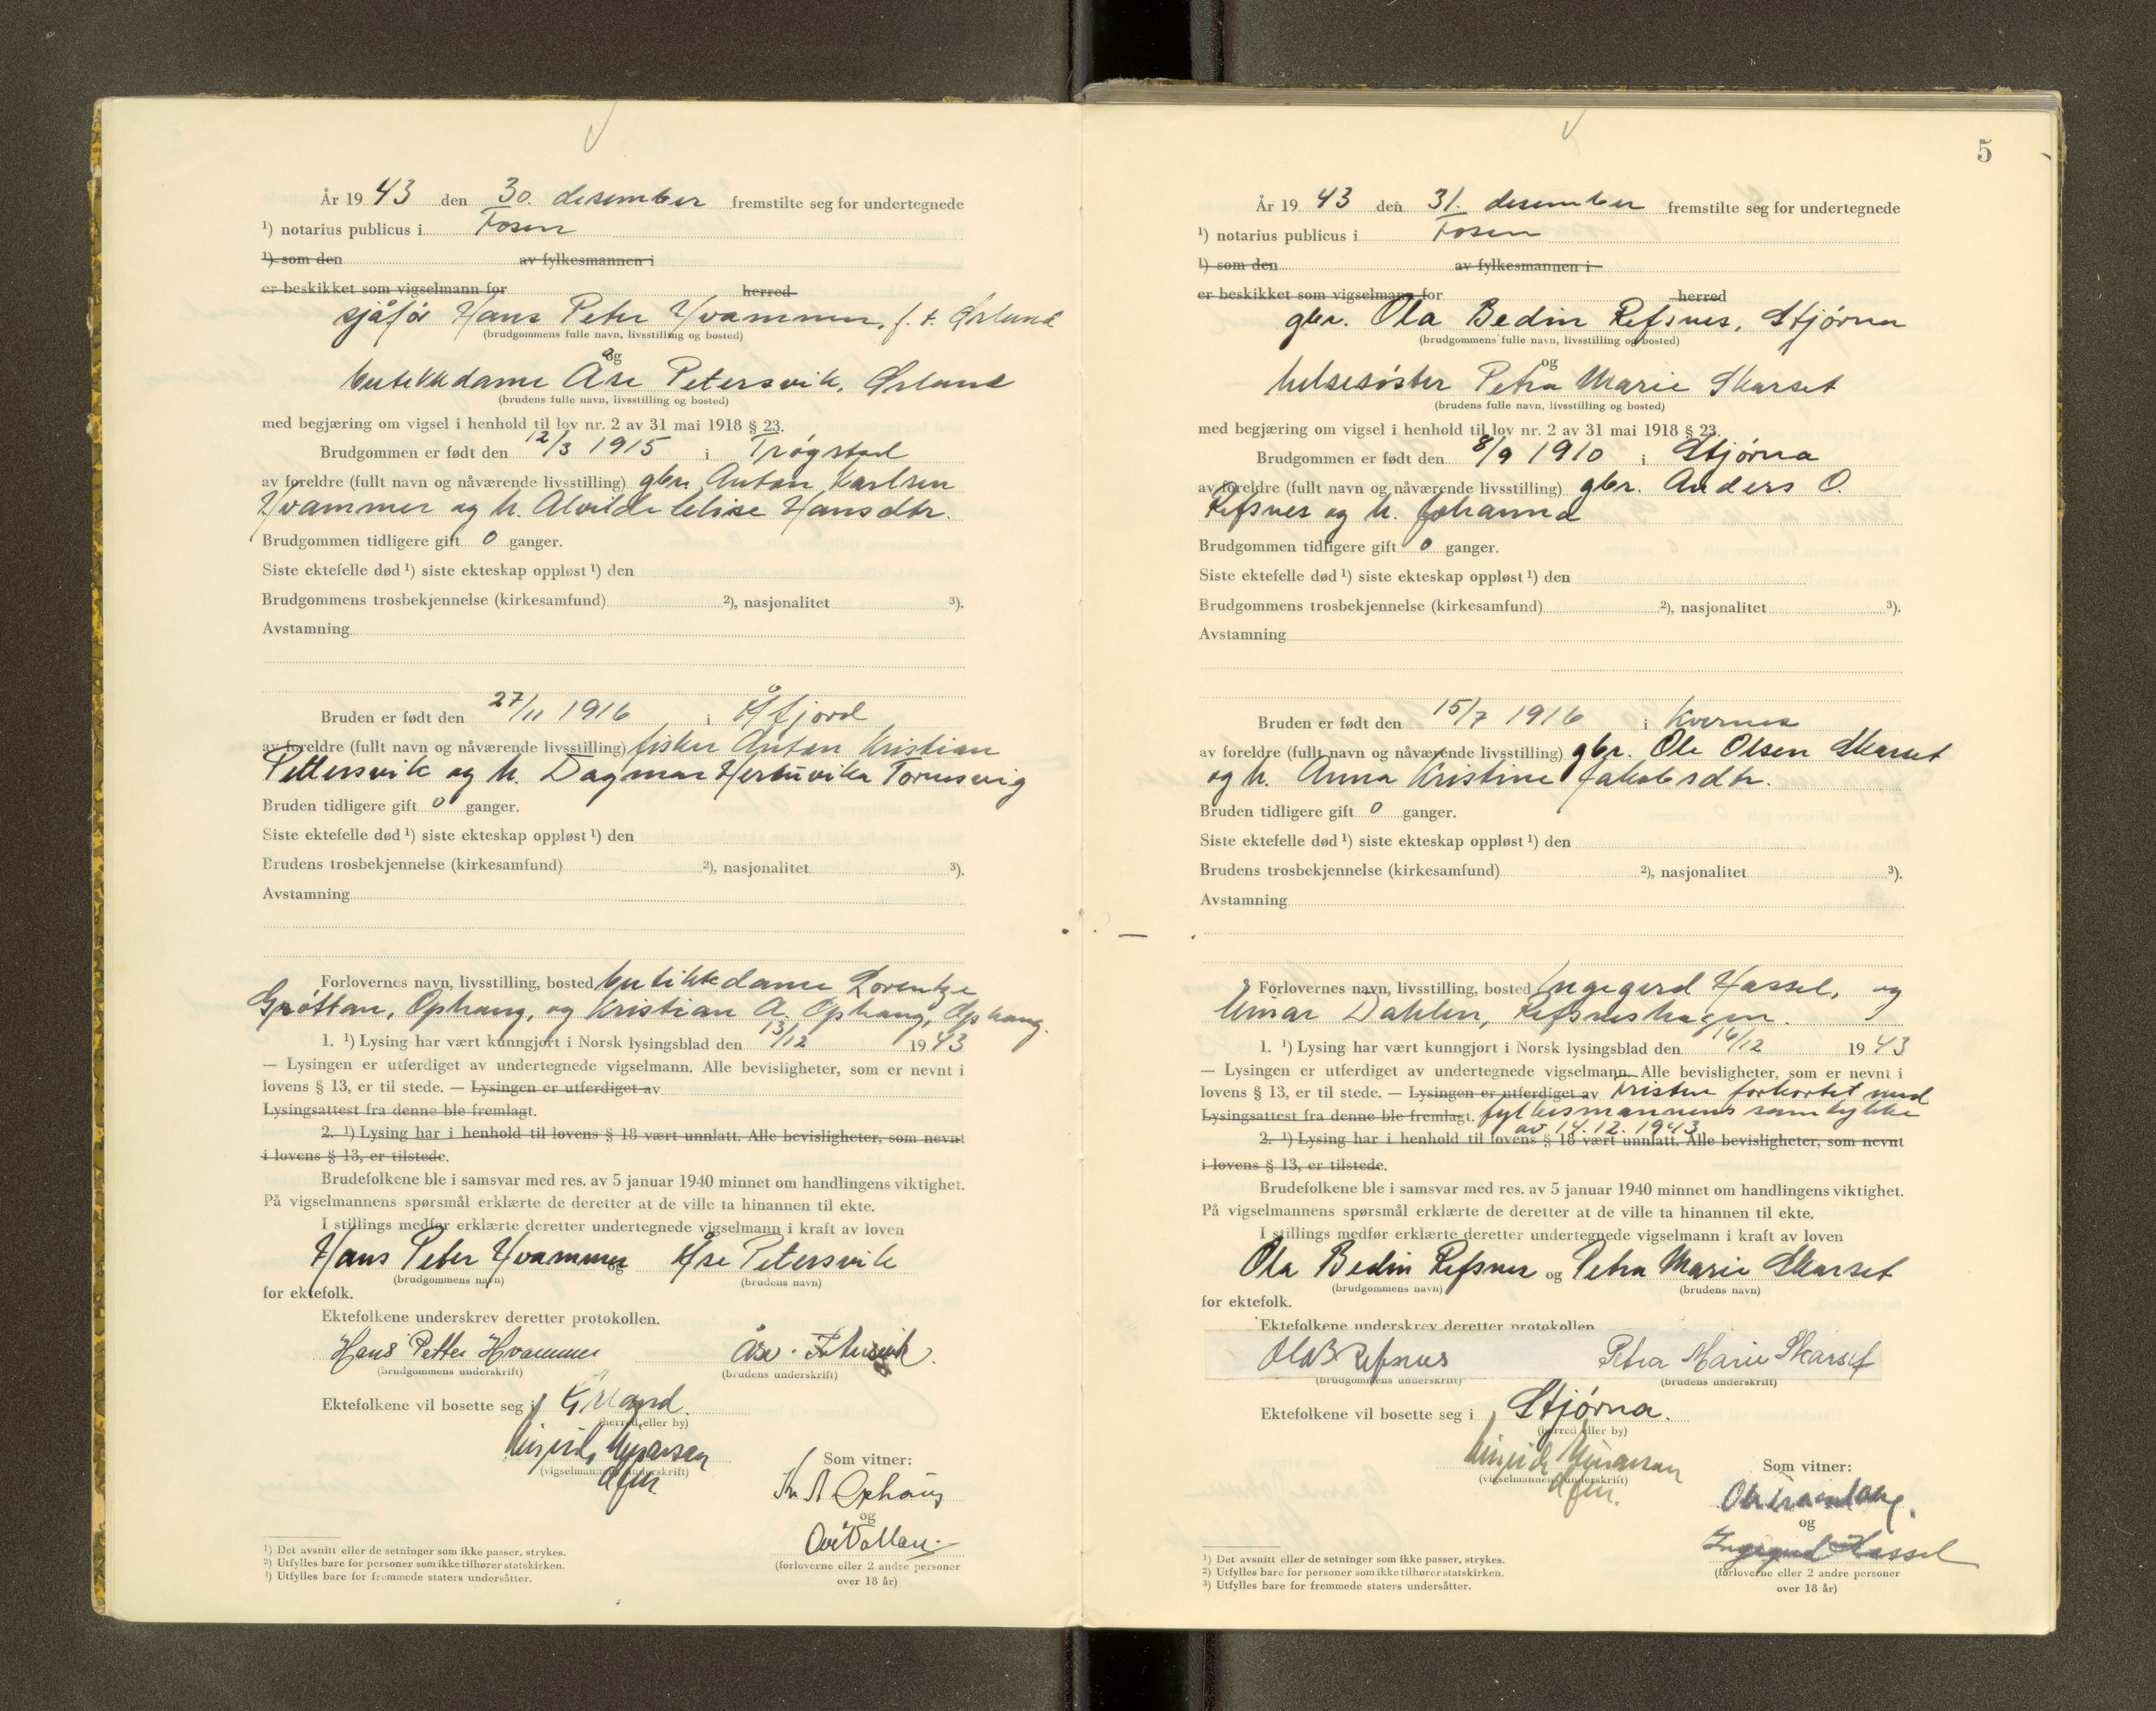 År 1943 den 30. desember fremstilte seg for undertegnede
¹) notarius publicus i Fosen
¹) som den av fylkesmannen i
er beskikket som vigselmann for herred
sjåfør Hans Peter Hvammer, f. t. Ørland
(brudgommens fulle navn, livsstilling og bosted)
og
butikkdame Åse Petersvik, Ørland
(brudens fulle navn, livsstilling og bosted)
med begjæring om vigsel i henhold til lov nr. 2 av 31 mai 1918 § 23.
Brudgommen er født den 12/3 1915 i Trøgstad
av foreldre (fullt navn og nåværende livsstilling) gbr. Anton Karlsen
Hvammer og h. Alvilde Elise Hansdtr.
Brudgommen tidligere gift 0 ganger.
Siste ektefelle død ¹) siste ekteskap oppløst ¹) den
Brudgommens trosbekjennelse (kirkesamfund) ²), nasjonalitet ³).
Avstamning
Bruden er født den 27/11 1916, i Åfjord
av foreldre (fullt navn og nåværende livsstilling) fisker Anton Kristian
Pettersvik og h. Dagmar Hertuvika Tørnesvig
Bruden tidligere gift 0 ganger.
Siste ektefelle død ¹) siste ekteskap oppløst ¹) den
Brudens trosbekjennelse (kirkesamfund) ²), nasjonalitet ³).
Avstamning
Forlovernes navn, livsstilling, bosted butikkdame Lorentze
Grøttan, Ophaug, og Kristian A. Ophaug, Ophaug.
1. ¹) Lysing har vært kunngjort i Norsk lysingsblad den 13/12 1943
— Lysingen er utferdiget av undertegnede vigselmann. Alle bevisligheter, som er nevnt i
lovens § 13, er til stede. — Lysingen er utferdiget av
Lysingsattest fra denne ble fremlagt.
2. ¹) Lysing har i henhold til lovens § 18 vært unnlatt. Alle bevisligheter, som nevnt
i lovens § 13, er tilstede.
Brudefolkene ble i samsvar med res. av 5 januar 1940 minnet om handlingens viktighet.
På vigselmannens spørsmål erklærte de deretter at de ville ta hinannen til ekte.
I stillings medfør erklærte deretter undertegnede vigselmann i kraft av loven
Hans Peter Hvammer og Åse Petersvik
(brudgommens navn) (brudens navn)
for ektefolk.
Ektefolkene underskrev deretter protokollen.
Hans Petter Hvammer Åse Petersvik.
(brudgommens underskrift) (brudens underskrift)
Ektefolkene vil bosette seg i
(herred eller by)
(vigselmannens underskrift)
Som vitner:
Kr A Ophaug
og
(forloverne eller 2 andre personer
over 18 år)
¹) Det avsnitt eller de setninger som ikke passer, strykes.
²) Utfylles bare for personer som ikke tilhører statskirken.
³) Utfylles bare for fremmede staters undersåtter.
5
År 1943 den 31. desember fremstilte seg for undertegnede
¹) notarius publicus i Fosen
¹) som den av fylkesmannen i
er beskikket som vigselmann for herred
gbr. Ola Bedin Refsnes, Stjørna
(brudgommens fulle navn, livsstilling og bosted)
og
helsesøster Petra Marie Skarset
(brudens fulle navn, livsstilling og bosted)
med begjæring om vigsel i henhold til lov nr. 2 av 31 mai 1918 § 23.
Brudgommen er født den 8/9 1910 i Stjørna
av foreldre (fullt navn og nåværende livsstilling) gbr. Anders O.
Refsnes og h. Johanna
Brudgommen tidligere gift 0 ganger.
Siste ektefelle død ¹) siste ekteskap oppløst ¹) den
Brudgommens trosbekjennelse (kirkesamfund) ²), nasjonalitet ³).
Avstamning
Bruden er født den 15/7 1916 i Kvernes
av foreldre (fullt navn og nåværende livsstilling) gbr. Ole Olsen Skarset
og h. Anna Kristine Jakobsdtr.
Bruden tidligere gift 0 ganger.
Siste ektefelle død ¹) siste ekteskap oppløst ¹) den
Brudens trosbekjennelse (kirkesamfund) ²), nasjonalitet ³).
Avstamning
Forlovernes navn, livsstilling, bosted Ingegerd Hassel, og
Einar Dahlen, Refsneshagen.
1. ¹) Lysing har vært kunngjort i Norsk lysingsblad den 16/12 1943
— Lysingen er utferdiget av undertegnede vigselmann. Alle bevisligheter, som er nevnt i
lovens § 13, er til stede. — Lysingen er utferdiget av fristen forkortet med
Lysingsattest fra denne ble fremlagt. fylkesmannens samtykke
av 14.12.1943
2. ¹) Lysing har i henhold til lovens § 18 vært unnlatt. Alle bevisligheter, som nevnt
i lovens § 13, er tilstede.
Brudefolkene ble i samsvar med res. av 5 januar 1940 minnet om handlingens viktighet.
På vigselmannens spørsmål erklærte de deretter at de ville ta hinannen til ekte.
I stillings medfør erklærte deretter undertegnede vigselmann i kraft av loven
Ola Bedin Refsnes og Petra Marie Skarset
(brudgommens navn) (brudens navn)
for ektefolk.
Ektefolkene underskrev deretter protokollen
Ola B Refsnes Petra Marie Skarset
(brudgommens underskrift) (brudens underskrift)
Ektefolkene vil bosette seg i Stjørna.
(herred eller by)
(vigselmannens underskrift)
Som vitner:
og
Ingegerd Hassel
(forloverne eller 2 andre personer
over 18 år)
¹) Det avsnitt eller de setninger som ikke passer, strykes.
²) Utfylles bare for personer som ikke tilhører statskirken.
³) Utfylles bare for fremmede staters undersåtter.